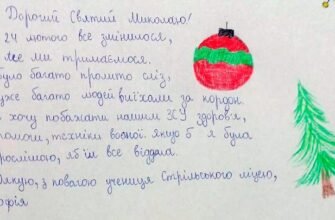 Дорогий Святий Миколаю!
24 лютого все змінилося,
ми тримаємося.
було багато пролито сліз,
дуже багато людей виїхали за кордон.
хочу побажати нашим ЗСУ здоров'я,
техніки воєної. якщо б я була
дорослішою, я б їм все віддала.
Дякую, з повагою учениця Стрільського ліцею,
Софія